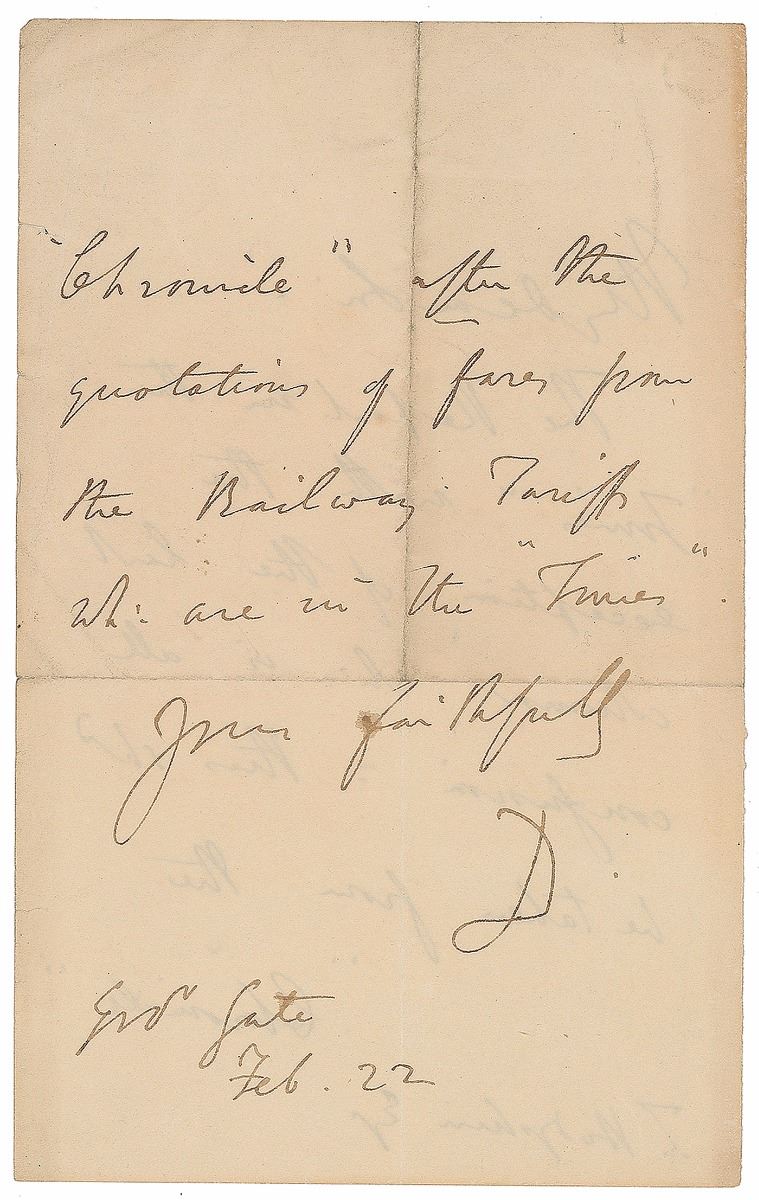 "Chronicle" after the
quotations of fares from
the Railway Tariffs
wh: are in the "Times".
Yours faithfully
D.
Grosr Gate
Feb. 22